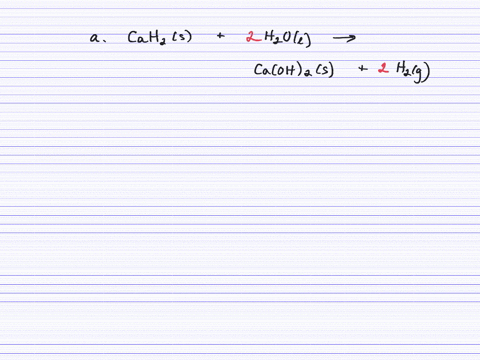 a. CaH₂(s) + 2 H₂O(l) →
Ca(OH)₂(s) + 2 H₂(g)